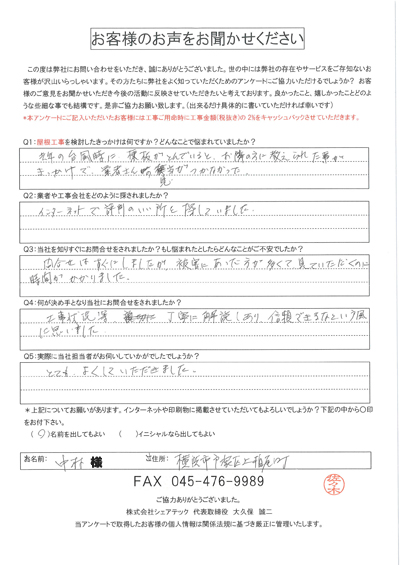 お客様のお声をお聞かせください
この度は弊社にお問い合わせをいただき、誠にありがとうございました。世の中には弊社の存在やサービスをご存知ないお
客様が沢山いらっしゃいます。その方たちに弊社をよく知っていただくためのアンケートにご協力いただけるでしょうか? お客
様のご意見をお聞かせいただき今後の活動に反映させていただきたいと考えております。良かったこと、嬉しかったことどのよ
うな些細な事でも結構です。是非ご協力お願い致します。(出来るだけ具体的に書いていただければ幸いです)
*本アンケートにご記入いただいたお客様には工事ご用命時に工事金額(税抜き)の 2%をキャッシュバックさせていただきます。
Q1:屋根工事を検討したきっかけは何ですか?どんなことで悩まれていましたか?
台風時に 棟板がとんでいると、お隣の方に教えられた事が
きっかけで、業者さんが見つからなかった。
Q2:業者や工事会社をどのように探されましたか?
インターネットで評判のいい所を探していました。
Q3:当社を知りすぐにお問合せをされましたか?もし悩まれたとしたらどんなことがご不安でしたか?
問合せはすぐにしましたが、被害にあった方が多くて、見ていただくのに
時間がかかりました。
Q4:何が決め手となり当社にお問合せをされましたか?
工事状況等、丁寧に解説しあり、信頼できるなという風
に思いました
Q5:実際に当社担当者がお伺いしていかがでしたでしょうか?
とても、よくしていただきました。
*上記についてお願いがあります。インターネットや印刷物に掲載させていただいてもよろしいでしょうか?下記の中から〇印
をお付下さい。
(〇)名前を出してもよい ( )イニシャルなら出してもよい
お名前: 中村 様 ご住所: 横浜市戸塚区上柏尾町
FAX 045-476-9989
佐々木
ご協力ありがとうございました。
株式会社シェアテック 代表取締役 大久保 誠二
当アンケートで取得したお客様の個人情報は関係法規に基づき厳正に管理いたします。